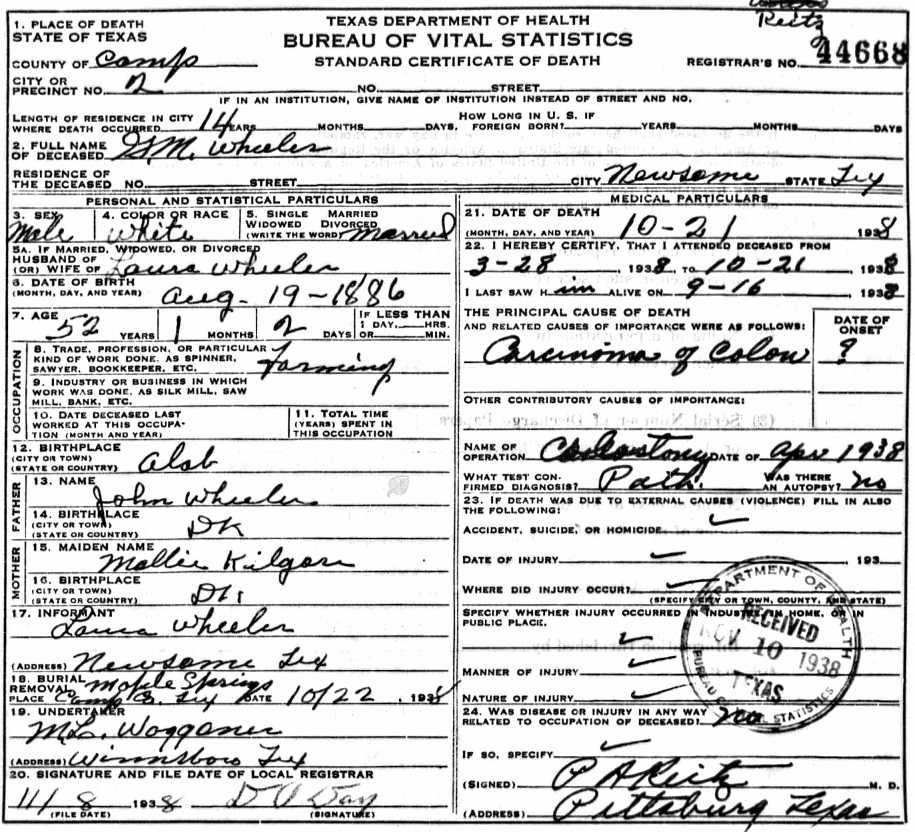 Reitz
1. PLACE OF DEATH
STATE OF TEXAS
TEXAS DEPARTMENT OF HEALTH
BUREAU OF VITAL STATISTICS
STANDARD CERTIFICATE OF DEATH
COUNTY OF Camp
REGISTRAR'S NO. 44668
CITY OR
PRECINCT NO. 2 NO. STREET
IF IN AN INSTITUTION, GIVE NAME OF INSTITUTION INSTEAD OF STREET AND NO.
LENGTH OF RESIDENCE IN CITY
WHERE DEATH OCCURRED 14 YEARS MONTHS DAYS. HOW LONG IN U. S. IF
FOREIGN BORN? YEARS MONTHS DAYS
2. FULL NAME
OF DECEASED G.M. Wheeler
RESIDENCE OF
THE DECEASED NO. STREET CITY Newsome STATE Tex
PERSONAL AND STATISTICAL PARTICULARS
3. SEX
Male
4. COLOR OR RACE
White
5. SINGLE MARRIED
WIDOWED DIVORCED
(WRITE THE WORD) Married
5A. IF MARRIED, WIDOWED, OR DIVORCED
HUSBAND OF
(OR) WIFE OF Laura Wheeler
6. DATE OF BIRTH
(MONTH, DAY, AND YEAR) Aug - 19 - 1886
7. AGE
52 YEARS 1 MONTHS 2 DAYS
IF LESS THAN
1 DAY, HRS.
OR MIN.
OCCUPATION
8. TRADE, PROFESSION, OR PARTICULAR
KIND OF WORK DONE. AS SPINNER,
SAWYER, BOOKKEEPER, ETC. Farming
9. INDUSTRY OR BUSINESS IN WHICH
WORK WAS DONE, AS SILK MILL, SAW
MILL, BANK, ETC.
10. DATE DECEASED LAST
WORKED AT THIS OCCUPA-
TION (MONTH AND YEAR)
11. TOTAL TIME
(YEARS) SPENT IN
THIS OCCUPATION
12. BIRTHPLACE
(CITY OR TOWN)
(STATE OR COUNTRY) Alab
FATHER
13. NAME
John Wheeler
14. BIRTHPLACE
(CITY OR TOWN)
(STATE OR COUNTRY) DK
MOTHER
15. MAIDEN NAME
Mollie Kilgore
16. BIRTHPLACE
(CITY OR TOWN)
(STATE OR COUNTRY) DK
17. INFORMANT
Laura Wheeler
(ADDRESS) Newsome Tex
18. BURIAL
REMOVAL Maple Springs
PLACE Camp Co. Tex DATE 10/22, 1938
19. UNDERTAKER
M.L. Waggoner
(ADDRESS) Winnsboro Tex
20. SIGNATURE AND FILE DATE OF LOCAL REGISTRAR
11/8 1938 D V Day
(FILE DATE) (SIGNATURE)
MEDICAL PARTICULARS
21. DATE OF DEATH
(MONTH, DAY, AND YEAR) 10-21 1938
22. I HEREBY CERTIFY, THAT I ATTENDED DECEASED FROM
3-28, 1938, TO 10-21, 1938
I LAST SAW H im ALIVE ON 9-16 1938
THE PRINCIPAL CAUSE OF DEATH
AND RELATED CAUSES OF IMPORTANCE WERE AS FOLLOWS:
DATE OF
ONSET
Carcinoma of Colon ?
OTHER CONTRIBUTORY CAUSES OF IMPORTANCE:
NAME OF
OPERATION Colostomy DATE OF Apr 1938
WHAT TEST CON-
FIRMED DIAGNOSIS? Path. WAS THERE
AN AUTOPSY? no
23. IF DEATH WAS DUE TO EXTERNAL CAUSES (VIOLENCE) FILL IN ALSO
THE FOLLOWING:
ACCIDENT, SUICIDE, OR HOMICIDE
DATE OF INJURY 193
WHERE DID INJURY OCCUR?
(SPECIFY CITY OR TOWN, COUNTY, AND STATE)
SPECIFY WHETHER INJURY OCCURRED IN INDUSTRY, IN HOME, OR IN
PUBLIC PLACE.
MANNER OF INJURY
NATURE OF INJURY
DEPARTMENT OF HEALTH
RECEIVED
NOV 10 1938
TEXAS
BUREAU OF VITAL STATISTICS
24. WAS DISEASE OR INJURY IN ANY WAY
RELATED TO OCCUPATION OF DECEASED? no
IF SO, SPECIFY
(SIGNED) P A Reitz M. D.
(ADDRESS) Pittsburg Texas